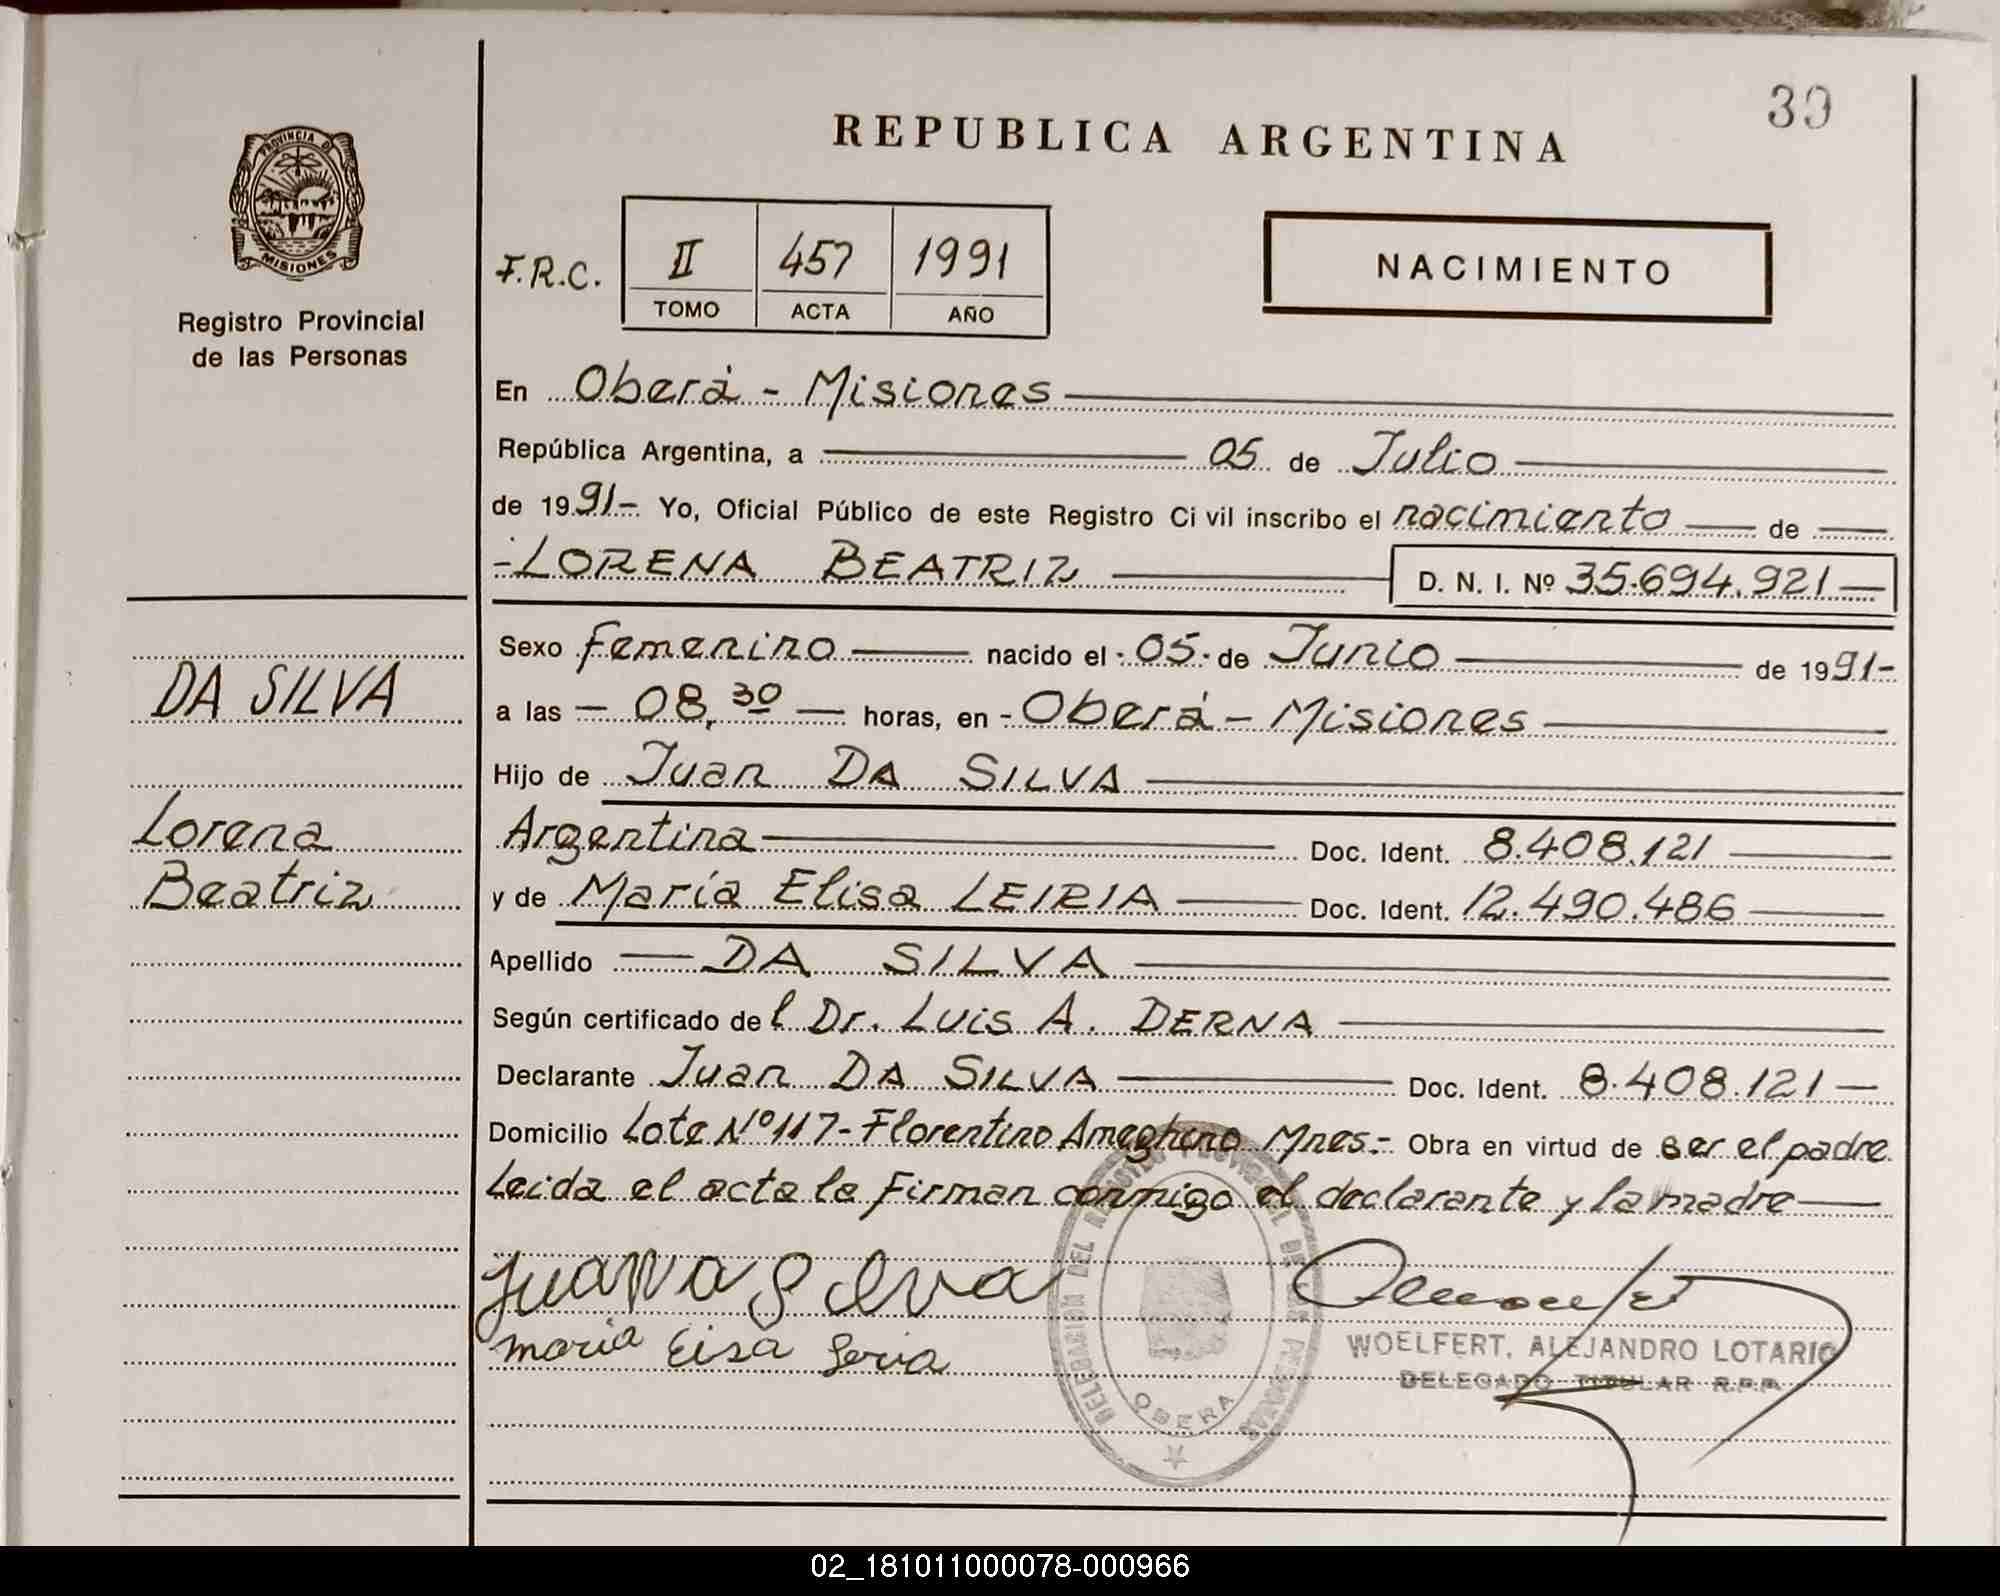 39
REPUBLICA ARGENTINA
PROVINCIA DE
MISIONES
Registro Provincial
de las Personas
F.R.C.
II 457 1991
TOMO ACTA AÑO
NACIMIENTO
En Oberá - Misiones
República Argentina, a 05 de Julio
de 1991- Yo, Oficial Público de este Registro Civil inscribo el nacimiento de
-LORENA BEATRIZ D. N. I. Nº 35.694.921
DA SILVA
Lorena
Beatriz
Sexo femenino nacido el 05 de Junio de 1991-
a las - 08,30 - horas, en - Oberá - Misiones
Hijo de Juan DA SILVA
Argentina Doc. Ident. 8.408.121
y de María Elisa LEIRIA Doc. Ident. 12.490.486
Apellido DA SILVA
Según certificado del Dr. Luis A. DERNA
Declarante Juan DA SILVA Doc. Ident. 8.408.121
Domicilio Lote Nº 117- Florentino Ameghino Mnes.- Obra en virtud de ser el padre
Leida el acta la firman conmigo el declarante y la madre
Juan Da Silva
maria Eisa
DELEGACION DEL REGISTRO PROVINCIAL DE LAS PERSONAS
OBERA
WOELFERT, ALEJANDRO LOTARIO
DELEGADO TITULAR R.P.P.
02_181011000078-000966